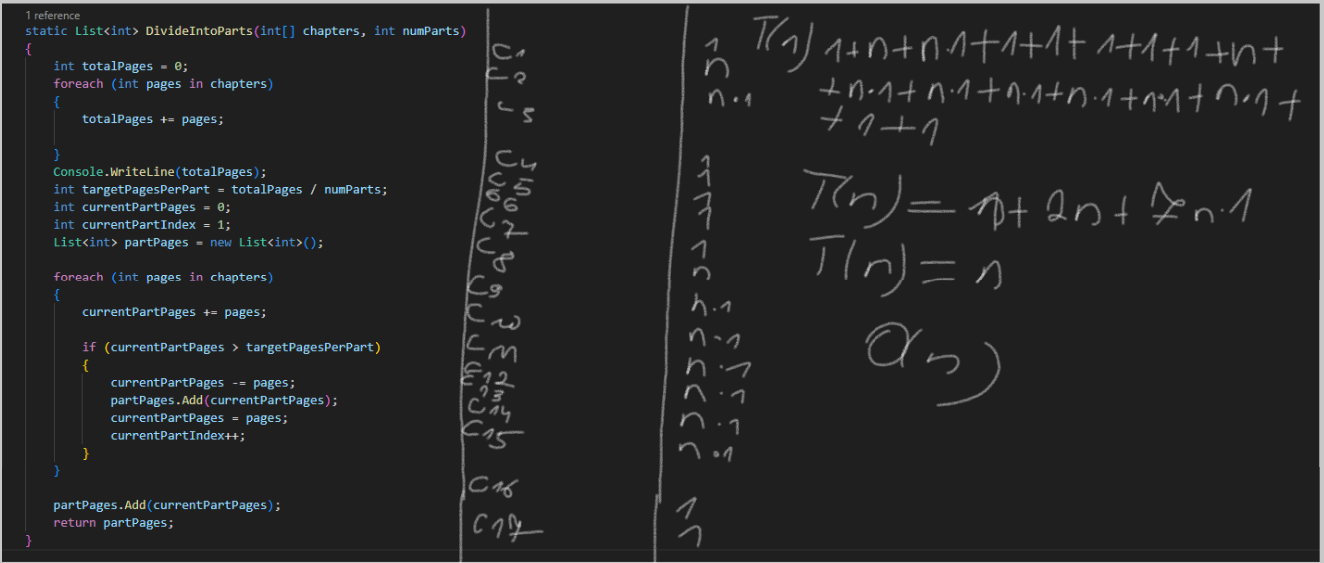 1 reference
static List<int> DivideIntoParts(int[] chapters, int numParts)
{
int totalPages = 0;
foreach (int pages in chapters)
{
totalPages += pages;
}
Console.WriteLine(totalPages);
int targetPagesPerPart = totalPages / numParts;
int currentPartPages = 0;
int currentPartIndex = 1;
List<int> partPages = new List<int>();
foreach (int pages in chapters)
{
currentPartPages += pages;
if (currentPartPages > targetPagesPerPart)
{
currentPartPages -= pages;
partPages.Add(currentPartPages);
currentPartPages = pages;
currentPartIndex++;
}
}
partPages.Add(currentPartPages);
return partPages;
}
C1
C2
C4
C5
C6
C7
C8
C9
C10
C11
C12
C13
C14
C15
C16
C17
1
n
n.1
1
1
1
1
1
n
n.1
n.1
n.1
n.1
n.1
n.1
1
1
T(1) 1+n+n.1+1+1+1+1+1+n+
+n.1+n.1+n.1+n.1+n.1+n.1+
+1+1
T(n)= + 2n + 7n.1
T(n)=n
O(n)